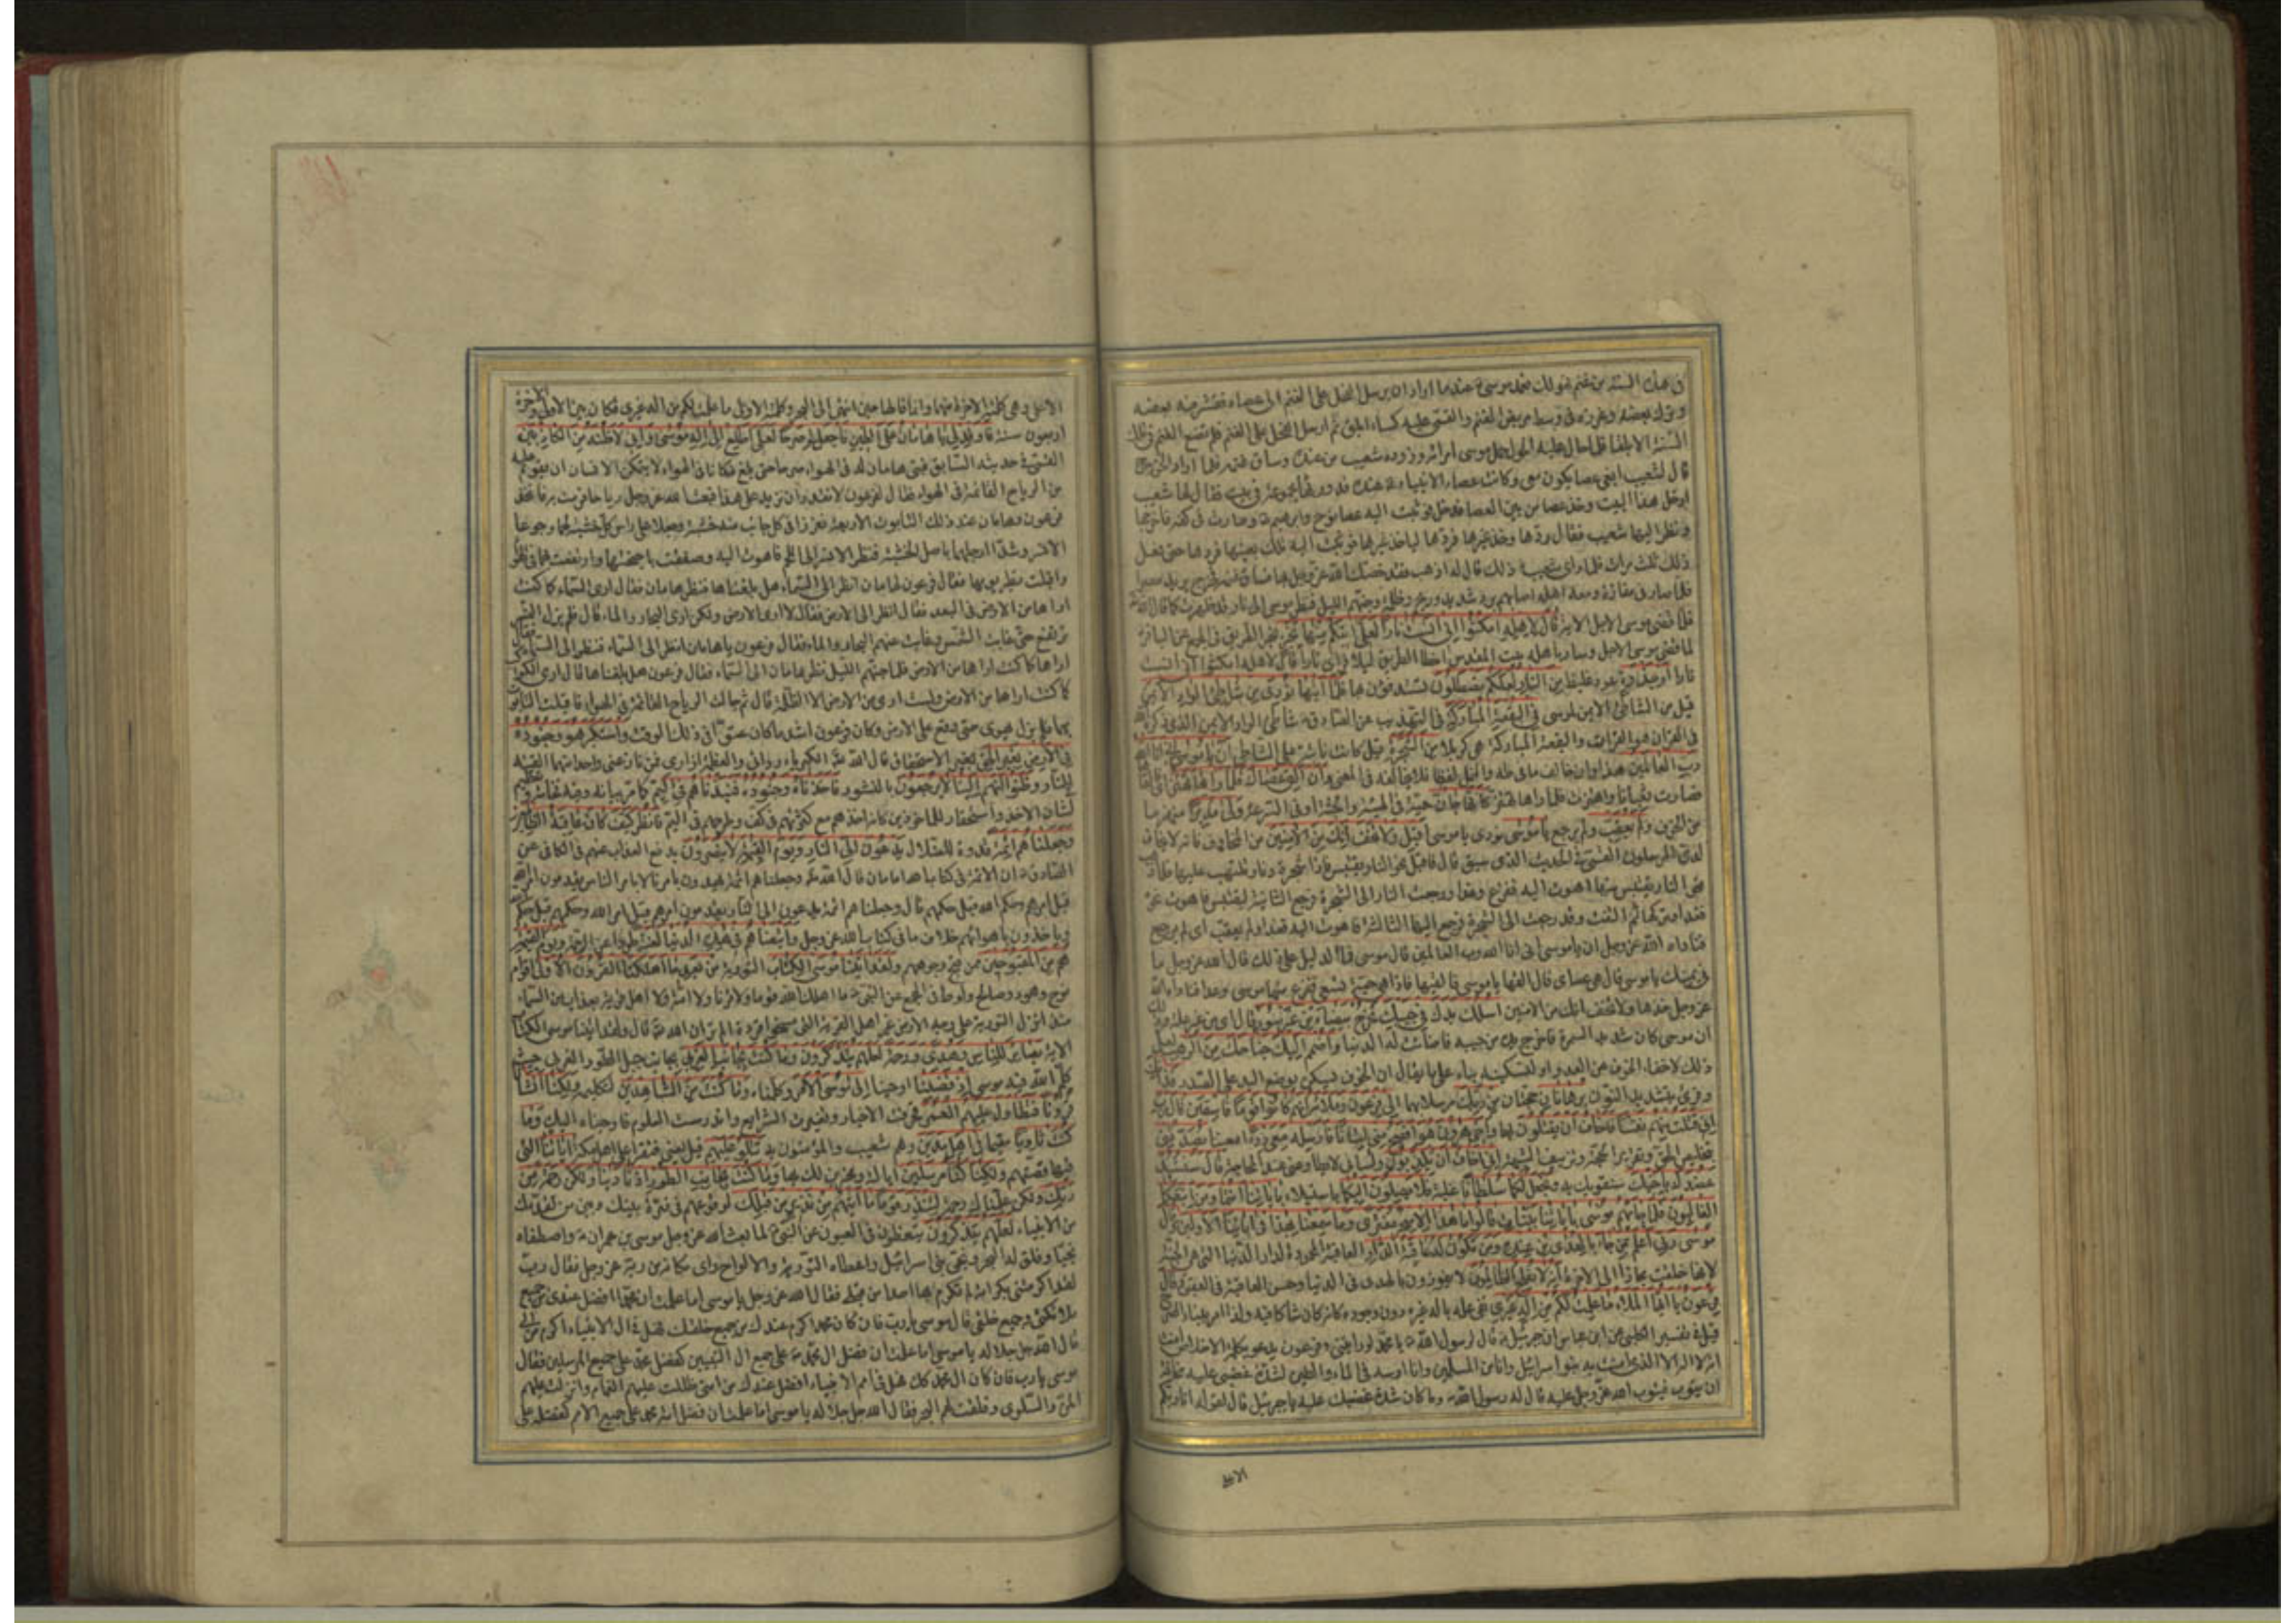 في هذه السنة من غنم فهو لك فعمد موسى عندما اراد ان يرسل الفحل على الغنم الى عصاه فقشر منه بعضه
وترك بعضه وغرزه في وسط مربض الغنم والقى عليه كساء ابلق ثم ارسل الفحل على الغنم فلم تضع الغنم في تلك
السنة الا بلقا فلما حال عليه الحول حمل موسى امراته وزوده شعيب من عنده وساق غنمه فلما اراد الخروج
قال لشعيب ابغى عصا يكون معى وكانت عصاء الانبياء عنده قد ورثها مجموعة في بيت فقال لها شعيب
ادخل هذا البيت وخذ عصا من بين العصا فدخل فوثبت اليه عصا نوح وابرهيم وصارت في كفه فاخرجها
ونظر اليها شعيب فقال ردها وخذ غيرها فردها لياخذ غيرها فوثبت اليه تلك بعينها فردها حتى فعل
ذلك ثلث مرات فلما راى شعيب ذلك قال له اذهب فقد خصك الله عز وجل بها فساق غنمه فخرج يريد مصر
فلما صار في مفازة ومعه اهله اصابهم برد شديد وريح وظلمة وجنهم الليل فنظر موسى الى نار قد ظهرت كما قال الله
فلما قضى موسى الاجل الاية قال لاهله امكثوا انى انست نارا لعلى اتيكم منها بخبر بخبر الطريق في المجمع عن الباقر
لما قضى موسى الاجل وسار باهله بيت المقدس اخطا الطريق ليلا فراى نارا قال لاهله امكثوا انى انست
نارا او جذوة عود غليظ من النار لعلكم تصطلون تستدفؤن بها فلما اتيها نودى من شاطئ الواد الايمن
قيل من الشاطئ الايمن لموسى في البقعة المباركة في التهذيب عن الصادق شاطئ الواد الايمن الذى ذكره الله
في القران هو الفرات والبقعة المباركة هى كربلا من الشجرة قيل كانت نابتة على الشاطئ ان يا موسى انى انا الله
رب العالمين هذا وان خالف ما في طه والنمل لفظا فلا يخالفه في المعنى وان الق عصاك فلما راها تهتز اى فالقاها
فصارت ثعبانا واهتزت فلما راها تهتز كانها جان حية في الهيئة والجثة او في السرعة ولى مدبرا منهزما
من الخوف ولم يعقب ولم يرجع يا موسى نودى يا موسى اقبل ولا تخف انك من الامنين من المخاوف فانه لا يخاف
لدى المرسلون القمى في الحديث الذى سبق قال فاقبل نحو النار يقتبس فاذا شجرة ونار تلتهب عليها فلما ذهب
نحو النار يقتبس منها اهوت اليه ففزع وعدا ورجعت النار الى الشجرة فرجع الثانية ليقتبس فاهوت نحوه
فعدا وتركها ثم التفت وقد رجعت الى الشجرة فرجع اليها الثالثة فاهوت اليه فعدا ولم يعقب اى لم يرجع
فناداه الله عز وجل ان يا موسى انى انا الله رب العالمين قال موسى فما الدليل على ذلك قال الله عز وجل ما
في يمينك يا موسى قال هى عصاى قال القها يا موسى فالقيها فاذا هى حية تسعى ففزع منها موسى وعدا فناداه الله
عز وجل خذها ولا تخف انك من الامنين اسلك يدك في جيبك تخرج بيضاء من غير سوء قال اى من غير علة وذلك
ان موسى كان شديد السمرة فاخرج يده من جيبه فاضاءت له الدنيا واضمم اليك جناحك من الرهب قيل
وقرئ بتشديد النون برهانان حجتان من ربك مرسلا بهما الى فرعون وملائه انهم كانوا قوما فاسقين قال رب
انى قتلت منهم نفسا فاخاف ان يقتلون بها واخى هرون هو افصح منى لسانا فارسله معى ردءا معينا يصدقنى
بتخليص الحق وتقرير الحجة وتزييف الشبهة انى اخاف ان يكذبون ولسانى لا يطاوعنى عند المحاجة قال سنشد
عضدك باخيك سنقويك به ونجعل لكما سلطانا غلبة فلا يصلون اليكما باستيلاء باياتنا انتما ومن اتبعكما
الغالبون فلما جاءهم موسى باياتنا بينات قالوا ما هذا الا سحر مفترى وما سمعنا بهذا في ابائنا الاولين وقال
موسى ربى اعلم بمن جاء بالهدى من عنده ومن تكون له عاقبة الدار العاقبة المحمودة لدار الدنيا التى هى الجنة
لانها خلقت مجازا الى الاخرة انه لا يفلح الظالمون لا يفوزون بالهدى في الدنيا وحسن العاقبة في العقبى وقال
فرعون يا ايها الملا ما علمت لكم من اله غيرى نفى علمه باله غيره دون وجوده كانه كان شاكا فيه ولذا امر ببناء الصرح
قيل في تفسير الكلبى عن ابن عباس ان جبرئيل قال لرسول الله يا محمد لو رايتنى وفرعون يدعو بكلمة الاخلاص امنت
انه لا اله الا الذى امنت به بنوا اسرائيل وانا من المسلمين وانا ادسه في الماء والطين لشدة غضبى عليه مخافة
ان يتوب فيتوب الله عز وجل عليه قال له رسول الله وما كان شدة غضبك عليه يا جبرئيل قال لقوله انا ربكم
الاعلى
الاعلى وهى كلمته الاخرة منهما وانما قالها حين انتهى الى البحر وكلمته الاولى ما علمت لكم من اله غيرى فكان بين الاولى والاخرة
اربعون سنة فاوقد لى يا هامان على الطين فاجعل لى صرحا لعلى اطلع الى اله موسى وانى لاظنه من الكاذبين
القمى في حديثه السابق فبنى هامان له في الهواء صرحا حتى بلغ مكانا في الهواء لا يتمكن الانسان ان يقوم عليه
من الرياح القائمة في الهواء فقال لفرعون لا نقدر ان نزيد على هذا فبعث الله عز وجل رياحا فرمت به فاتخذ
فرعون وهامان عند ذلك التابوت الاربعة فغرزا في كل جانب منه خشبة وجعلا على راس كل خشبة لحما وجوعا
الانسر وشدا ارجلها باصل الخشبة فنظر الانسر الى اللحم فاهوت اليه وصفقت باجنحتها وارتفعت بهما في الهواء
واقبلت يطير بهما فقال فرعون لهامان انظر الى السماء هل بلغناها فنظر هامان فقال ارى السماء كما كنت
اراها من الارض في البعد فقال انظر الى الارض فقال لا ارى الارض ولكن ارى البحار والماء قال فلم يزل النسر
ترتفع حتى غابت الشمس وغابت عنهم البحار والماء فقال فرعون يا هامان انظر الى السماء فنظر الى السماء فقال
اراها كما كنت اراها من الارض فلما جنهم الليل نظر هامان الى السماء فقال فرعون هل بلغناها قال ارى الكواكب
كما كنت اراها من الارض ولست ارى من الارض الا الظلمة قال ثم حالت الرياح القائمة في الهواء فاقبلت التابوت
بهما فلم يزل يهوى حتى وقع على الارض وكان فرعون اشد ما كان عتوا في ذلك الوقت واستكبر هو وجنوده
في الارض بغير الحق بغير الاستحقاق قال الله الكبرياء ردائى والعظمة ازارى فمن نازعنى واحدا منهما القيته
في النار وظنوا انهم الينا لا يرجعون بالنشور فاخذناه وجنوده فنبذناهم في اليم كما مر بيانه وفيه فخامة وتعظيم
لشان الاخذ واستحقار للماخوذين كانه اخذهم مع كثرتهم في كف وطرحهم في اليم فانظر كيف كان عاقبة الظالمين
وجعلناهم ائمة قدوة للضلال يدعون الى النار ويوم القيمة لا ينصرون بدفع العذاب عنهم في الكافى عن
الصادق ان الائمة في كتاب الله امامان قال الله وجعلناهم ائمة يهدون بامرنا لا بامر الناس يقدمون امر الله
قبل امرهم وحكم الله قبل حكمهم قال وجعلناهم ائمة يدعون الى النار يقدمون امرهم قبل امر الله وحكمهم قبل حكم الله
وياخذون باهوائهم خلاف ما في كتاب الله عز وجل واتبعناهم في هذه الدنيا لعنة طردا عن الرحمة ويوم القيمة
هم من المقبوحين ممن قبح وجوههم ولقد اتينا موسى الكتاب التورية من بعد ما اهلكنا القرون الاولى اقوام
نوح وهود وصالح ولوط في المجمع عن النبى ما اهلك الله قوما ولا قرنا ولا امة ولا اهل قرية بعذاب من السماء
منذ انزل التورية على وجه الارض غير اهل القرية التى مسخوا قردة الم تر ان الله قال ولقد اتينا موسى الكتاب
الاية بصائر للناس وهدى ورحمة لعلهم يتذكرون وما كنت بجانب الغربى بجانب جبل الطور الغربى حيث
كلم الله فيه موسى اذ قضينا اوحينا الى موسى الامر وكلمناه وما كنت من الشاهدين لتكليمه ولكنا انشانا
قرونا فتطاول عليهم العمر فحرفت الاخبار وتغيرت الشرايع واندرست العلوم فاوحيناه اليك وما
كنت ثاويا مقيما في اهل مدين وهم شعيب والمؤمنون به تتلو عليهم قيل يعنى فتقرا على اهل مكة اياتنا التى
فيها قصتهم ولكنا كنا مرسلين اياك ومخبرين لك بها وما كنت بجانب الطور اذ نادينا ولكن رحمة من
ربك ولكن علمناك رحمة لتنذر قوما ما اتيهم من نذير من قبلك لوقوعهم في فترة بينك وبين من تقدمك
من الانبياء لعلهم يتذكرون يتعظون في العيون عن النبى لما بعث الله عز وجل موسى بن عمران واصطفاه
نجيا وفلق له البحر ونجى بنى اسرائيل واعطاه التورية والالواح راى مكانه من ربه عز وجل فقال رب
لقد اكرمتنى بكرامة لم تكرم بها احدا من قبلى فقال الله عز وجل يا موسى اما علمت ان محمدا افضل عندى من جميع
ملائكتى وجميع خلقى قال موسى يا رب فان كان محمد اكرم عندك من جميع خلقك فهل في ال الانبياء اكرم من الى
قال الله جل جلاله يا موسى اما علمت ان فضل ال محمد على جميع ال النبيين كفضل محمد على جميع المرسلين فقال
موسى يا رب فان كان ال محمد كك فهل في امم الانبياء افضل عندك من امتى ظللت عليهم الغمام وانزلت عليهم
المن والسلوى وفلقت لهم البحر فقال الله جل جلاله يا موسى اما علمت ان فضل امة محمد على جميع الامم كفضله على